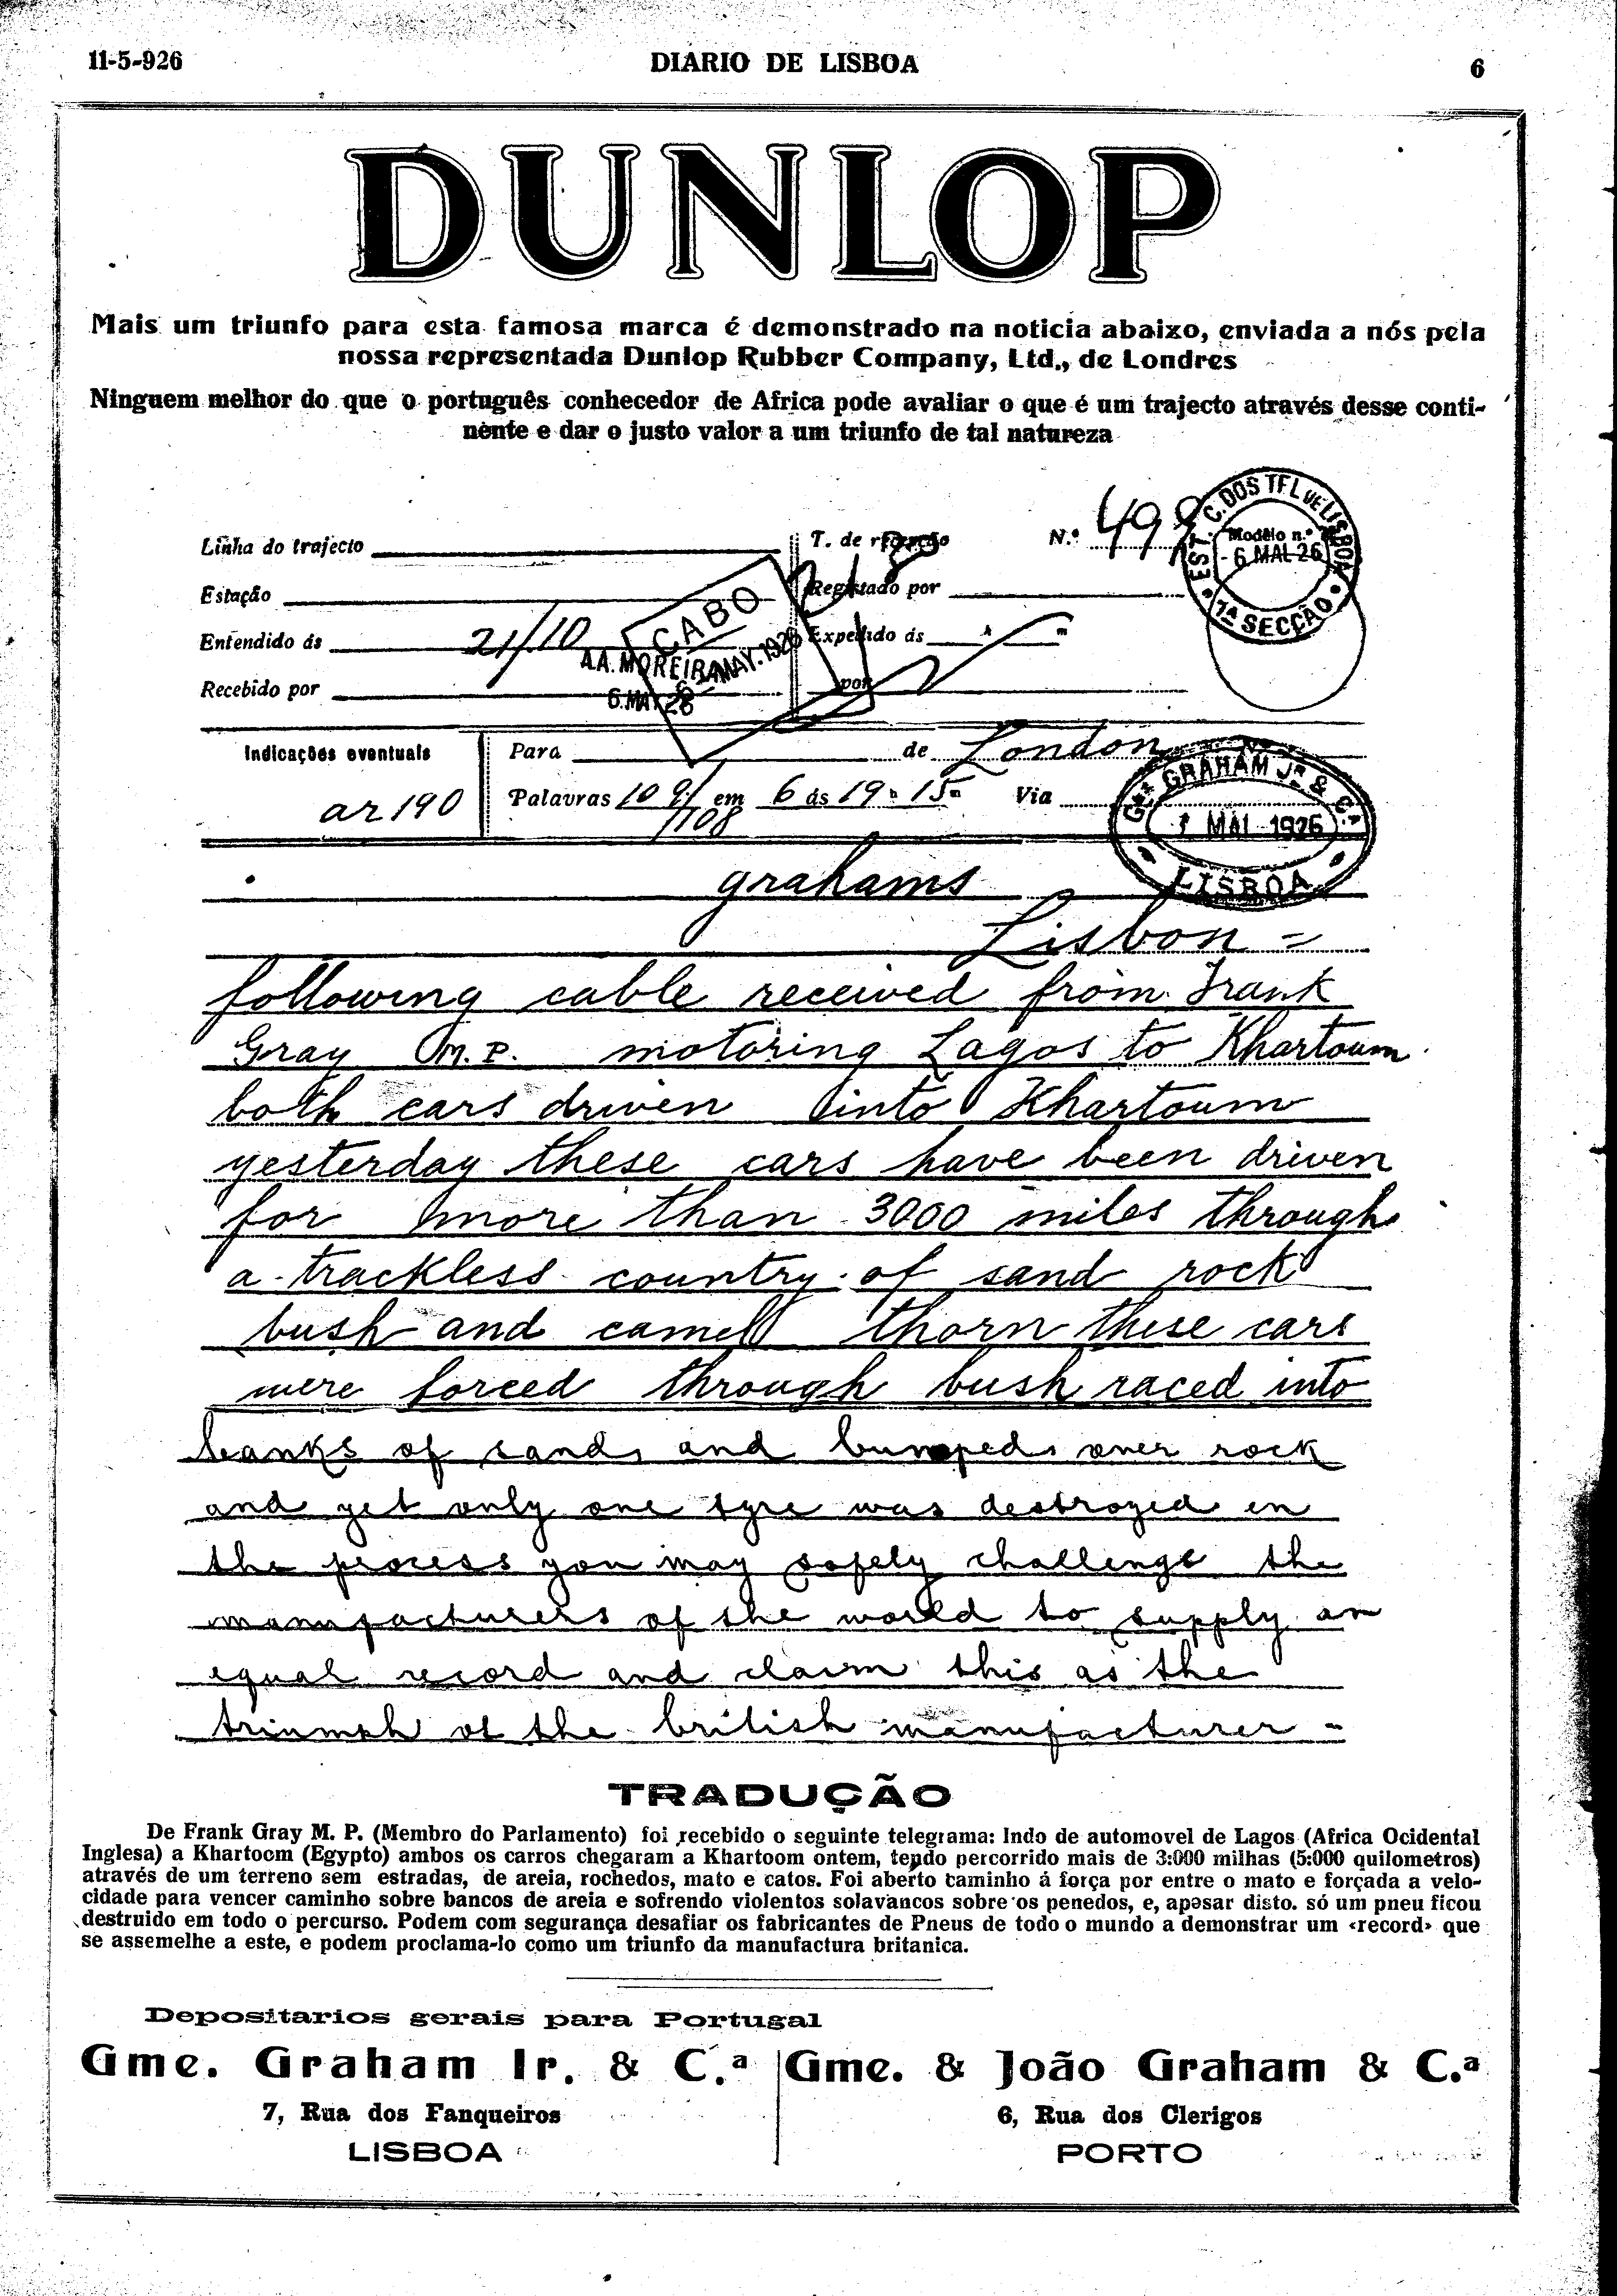 11-5-926
DIARIO DE LISBOA
6
DUNLOP
Mais um triunfo para esta famosa marca é demonstrado na noticia abaixo, enviada a nós pela
nossa representada Dunlop Rubber Company, Ltd., de Londres
Ninguem melhor do que o português conhecedor de Africa pode avaliar o que é um trajecto através desse conti-
nente e dar o justo valor a um triunfo de tal natureza
Linha do trajecto
T. de
N.º 499
Modêlo n.º
EST. C. DOS TEL. DE LISBOA
6 MAI 26
1ª SECÇÃO
Estação
Registado por
Entendido ás 21/10
Expedido ás
CABO
A.A. MOREIRA
MAY. 1926
6. MAI 26
Recebido por
por
Indicações eventuais
Para
de London
ar 190
Palavras 109/108 em 6 ás 19 h 15 m
Via
Gme GRAHAM Jr & C.ª
7 MAI 1926
LISBOA
grahams
Lisbon =
following cable received from Frank
Gray M.P. motoring Lagos to Khartoum
both cars driven into Khartoum
yesterday these cars have been driven
for more than 3000 miles through
a trackless country of sand rock
bush and camel thorn these cars
were forced through bush raced into
banks of sand and bumped over rock
and yet only one tyre was destroyed in
the process you may safely challenge the
manufacturers of the world to supply an
equal record and claim this as the
triumph of the british manufacturer =
TRADUÇÃO
De Frank Gray M. P. (Membro do Parlamento) foi recebido o seguinte telegrama: Indo de automovel de Lagos (Africa Ocidental
Inglesa) a Khartoom (Egypto) ambos os carros chegaram a Khartoom ontem, tendo percorrido mais de 3:000 milhas (5:000 quilometros)
através de um terreno sem estradas, de areia, rochedos, mato e catos. Foi aberto caminho á força por entre o mato e forçada a velo-
cidade para vencer caminho sobre bancos de areia e sofrendo violentos solavancos sobre os penedos, e, apesar disto. só um pneu ficou
destruido em todo o percurso. Podem com segurança desafiar os fabricantes de Pneus de todo o mundo a demonstrar um «record» que
se assemelhe a este, e podem proclama-lo como um triunfo da manufactura britanica.
Depositarios gerais para Portugal
Gme. Graham Ir. & C.ª
Gme. & João Graham & C.ª
7, Rua dos Fanqueiros
6, Rua dos Clerigos
LISBOA
PORTO